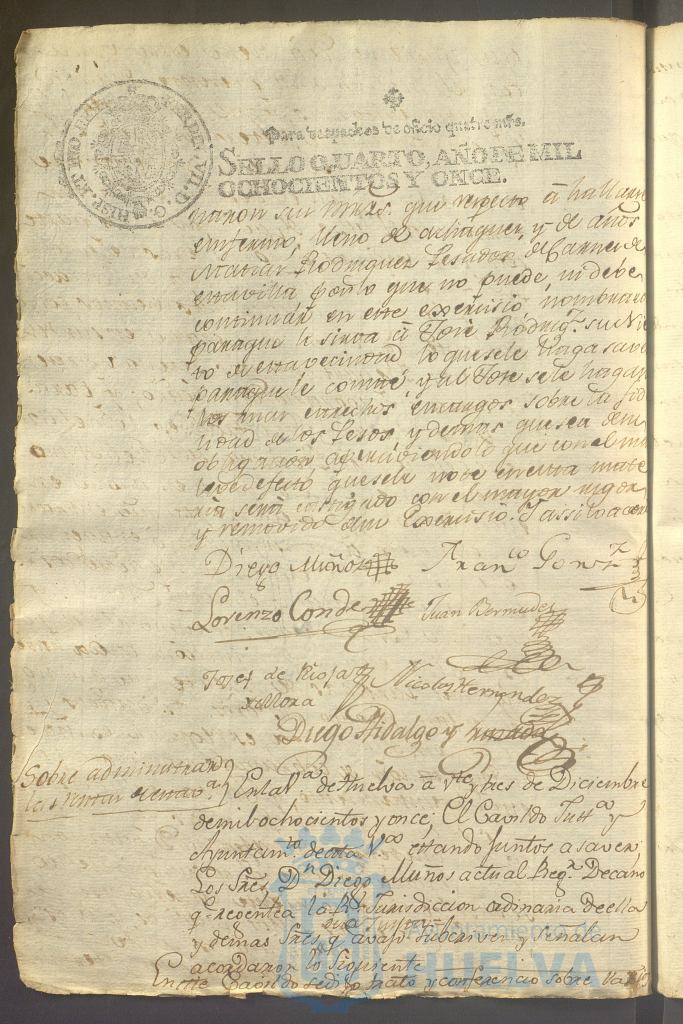 HISP. ET IND. R
FERD. VII. D. G.
Para despachos de oficio quatro mrs.
SELLO QUARTO, AÑO DE MIL
OCHOCIENTOS Y ONCE.
daron sus mrds. que respecto á hallarse
enfermo, lleno de achaques y de años
Matias Rodriguez Pesador de Carnes de
esta villa por lo que no puede, ni debe
continuar en este exercisio, nombrar
para que le sirva á Jose Rodrigz. su
to de esta vecindad lo que se le haga saver
para que le conste y al Jose se le hagan
los mas estrechos encargos sobre la fide
lidad de los Pesos y demas que sea de su
obligacion apercibiendolo que con el mas
leve defecto que se le note en esta mate
ria será castigado con el mayor rigor
y removido de su Exercisio. Y assi lo acor
Diego Muñoz Franco Gonz
Lorenzo Conde Juan Bermudez
Josef de Rioja Nicolas Hernandez
y Mora
Diego Hidalgo y
Sobre administrar
las rentas de esta va.
En la Va. de Huelva á Vte. y tres de Diciembre
de mil ochocientos y once, El Cavildo Justa. y
Ayuntamto. de esta Va. estando Juntos a saver
Los Sres. Dn. Diego Muños actual Regr. Decano
q. regentea la Rl. Jurisdiccion ordinaria de ella
y demas Sres. q. avajo subcriven y señalan
acordaron lo siguiente
En este Cavildo se dijo trató y conferencio sobre
Ayuntamiento de
HUELVA